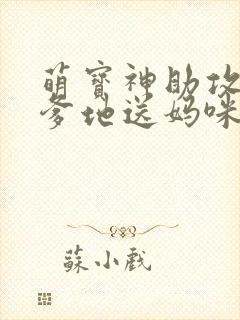 萌寶神助攻
爹地送媽咪
蘇小戲